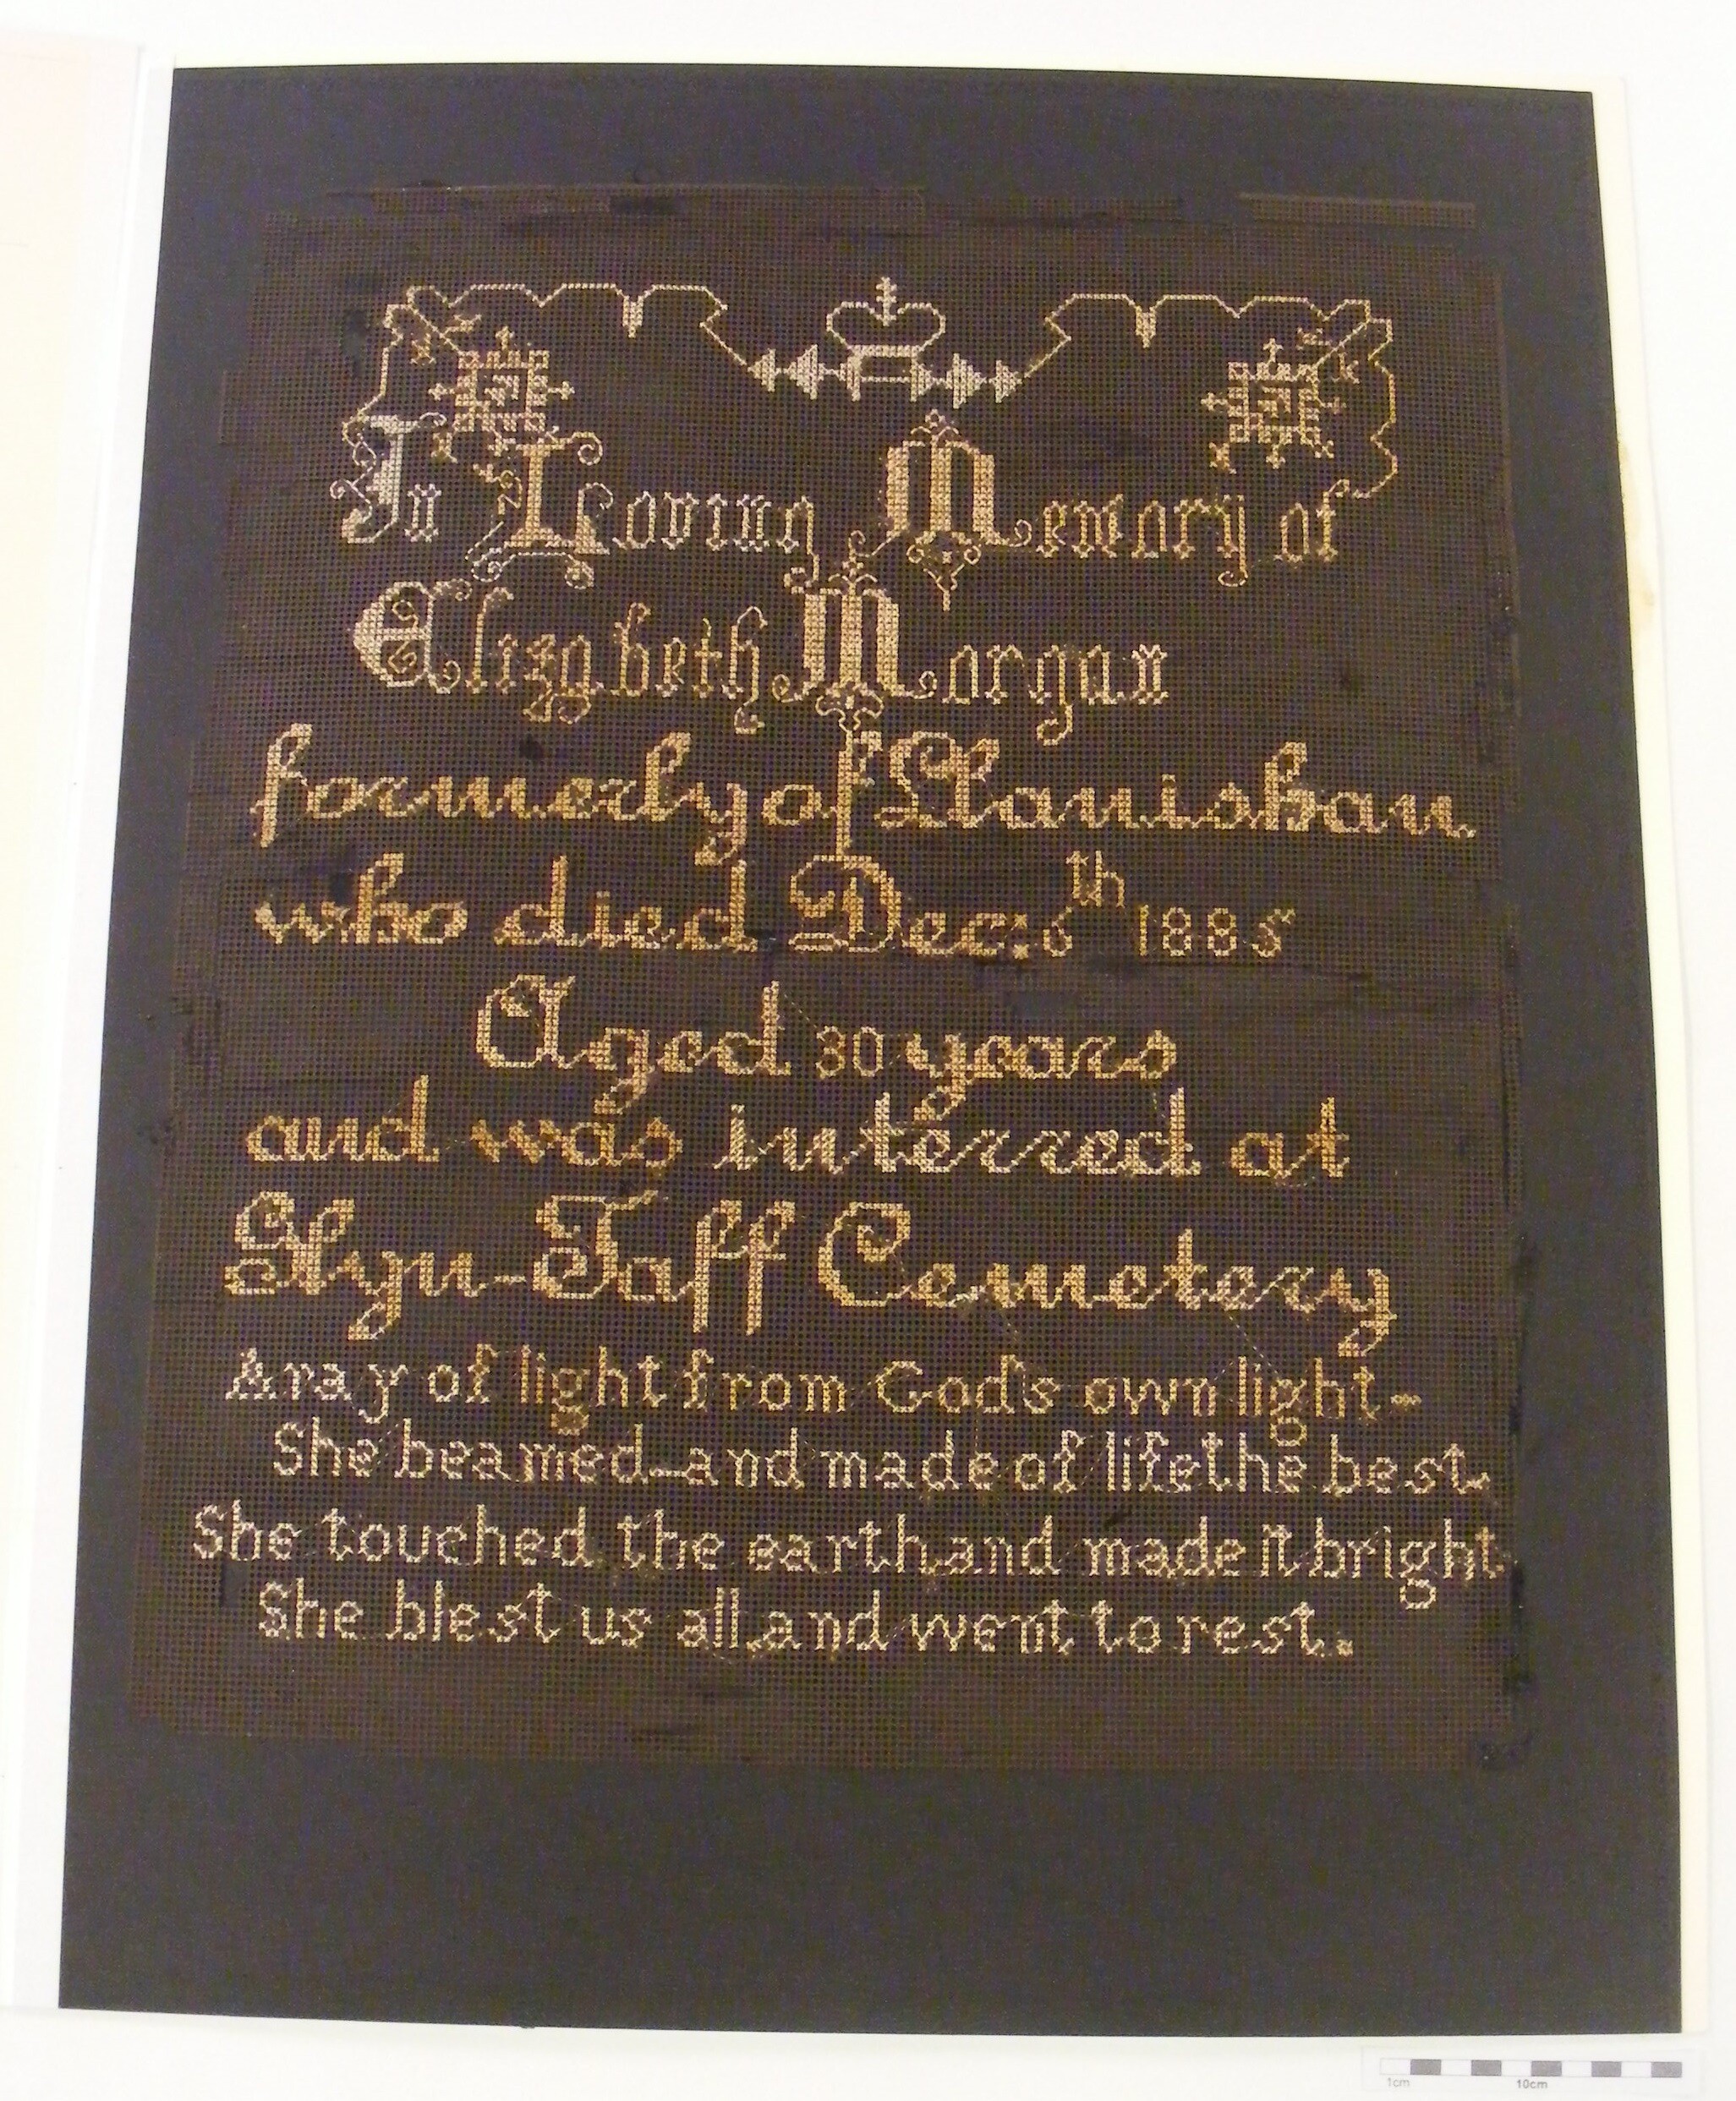 In Loving Memory of
Elizabeth Morgan
formerly of Llanishan
who died Dec: 6th 1885
Aged 30 years
and was interred at
Glyn-Taff Cemetery
A ray of light from God's own light-
She beamed-and made of life the best.
She touched the earth, and made it bright
She blest us all, and went to rest.
1cm 10cm